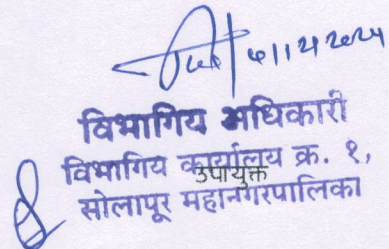 विभागिय अधिकारी
विभागिय कार्यालय क्र. १,
उपायुक्त
सोलापूर महानगरपालिका